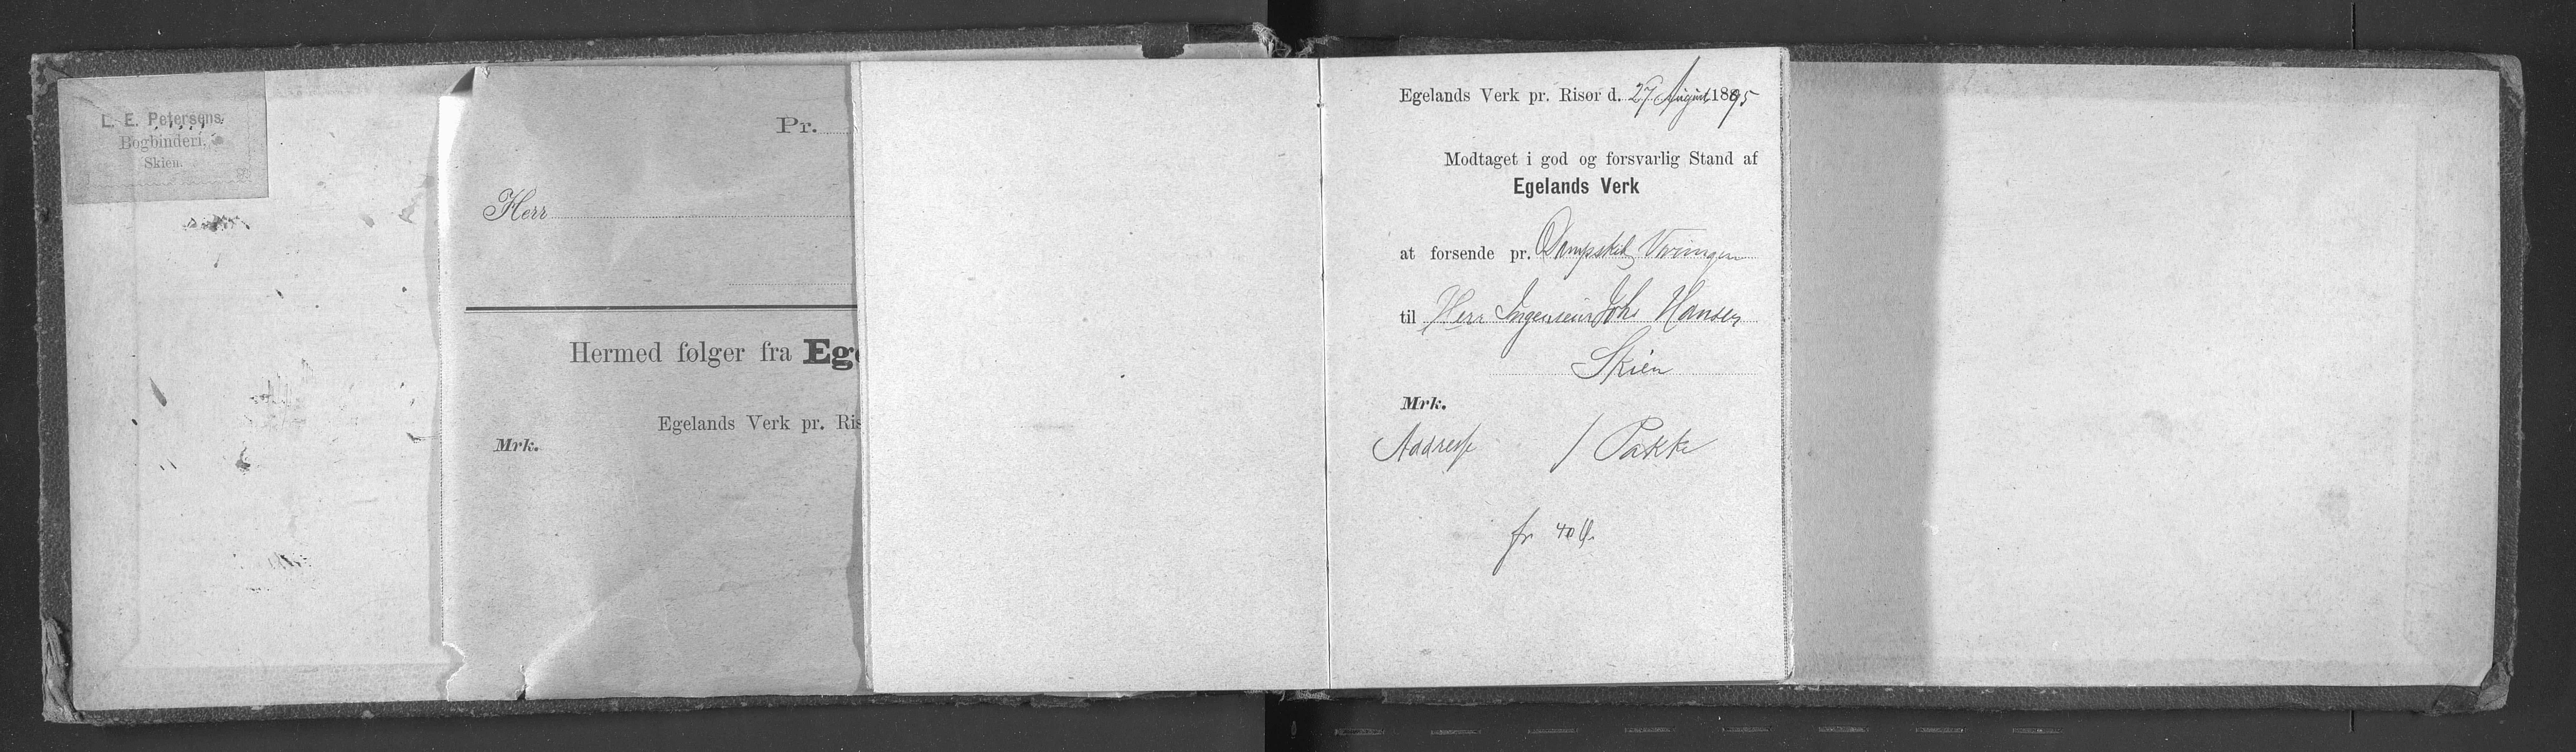 L. E. Petersens
Bogbinderi,
Skien.
Pr.
Herr
Hermed følger fra Ege
Egelands Verk pr. Ris
Mrk.
Egelands Verk pr. Risør d. 27 August 1895
Modtaget i god og forsvarlig Stand af
Egelands Verk
at forsende pr. Dampskib Væringen
til Herr Ingeniør Johs Hansen
Skien
Mrk.
Addresse 1 Pakke
fr 40 Ø.